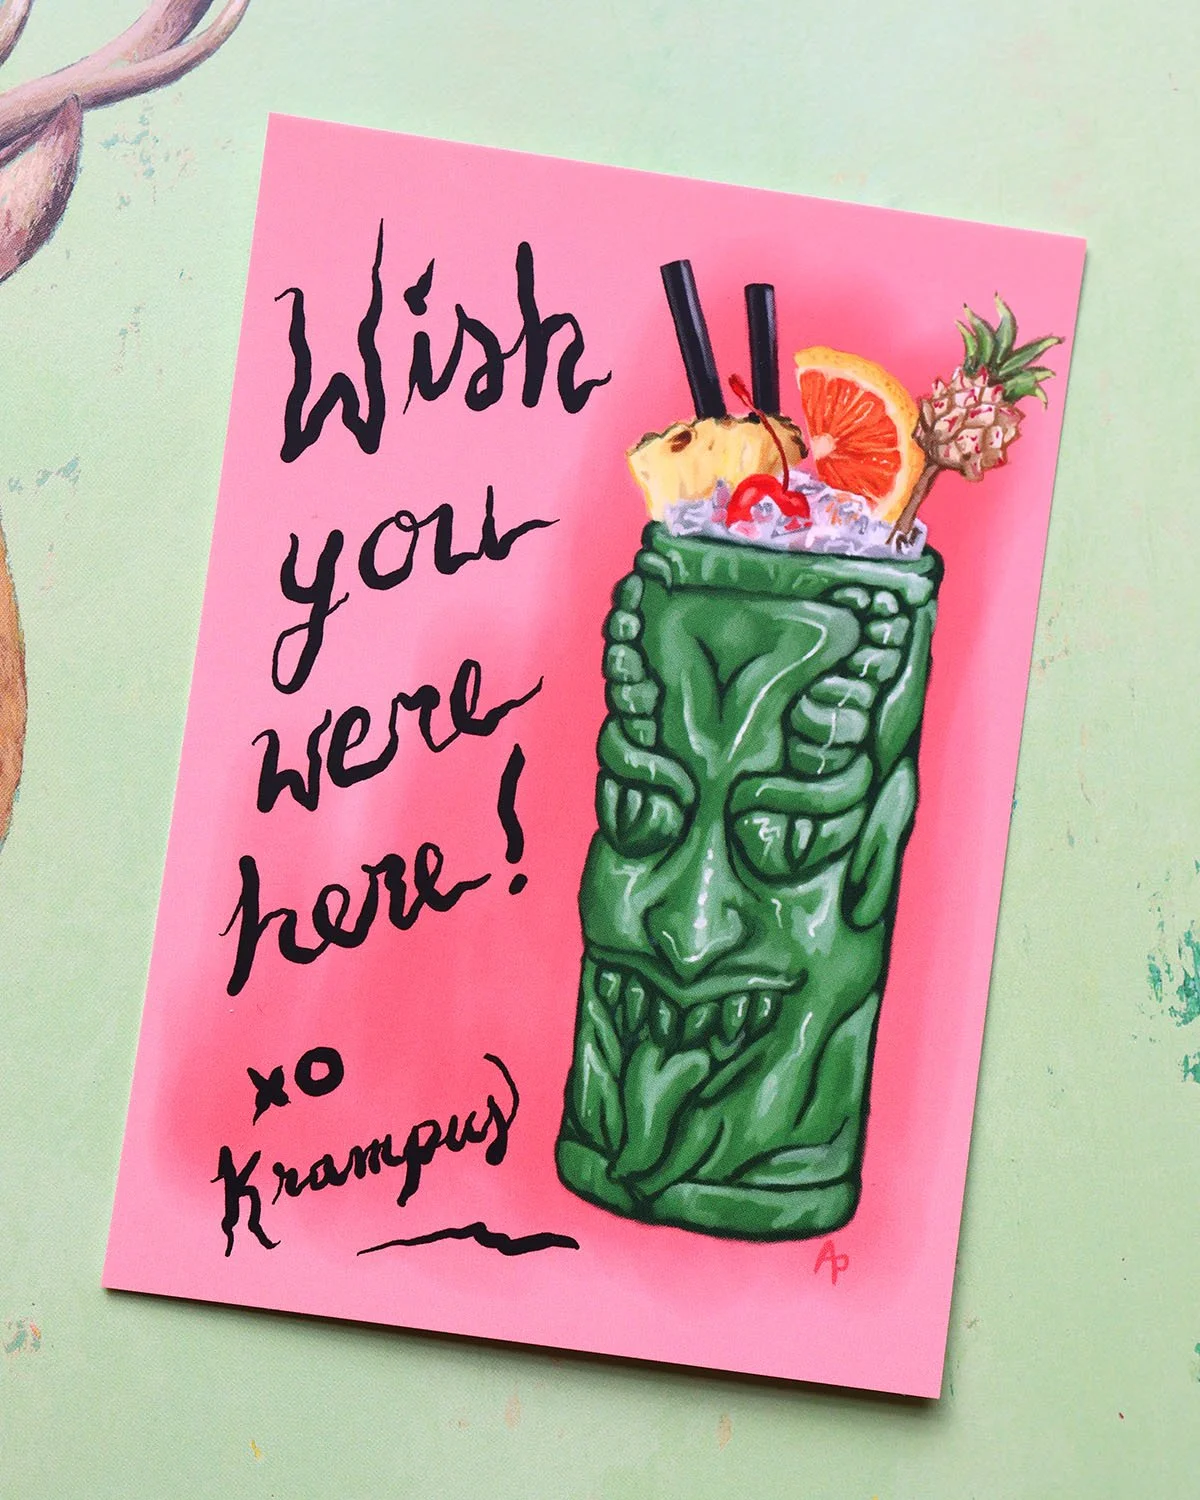 Wish
you
were
here!
xo
Krampus
AP